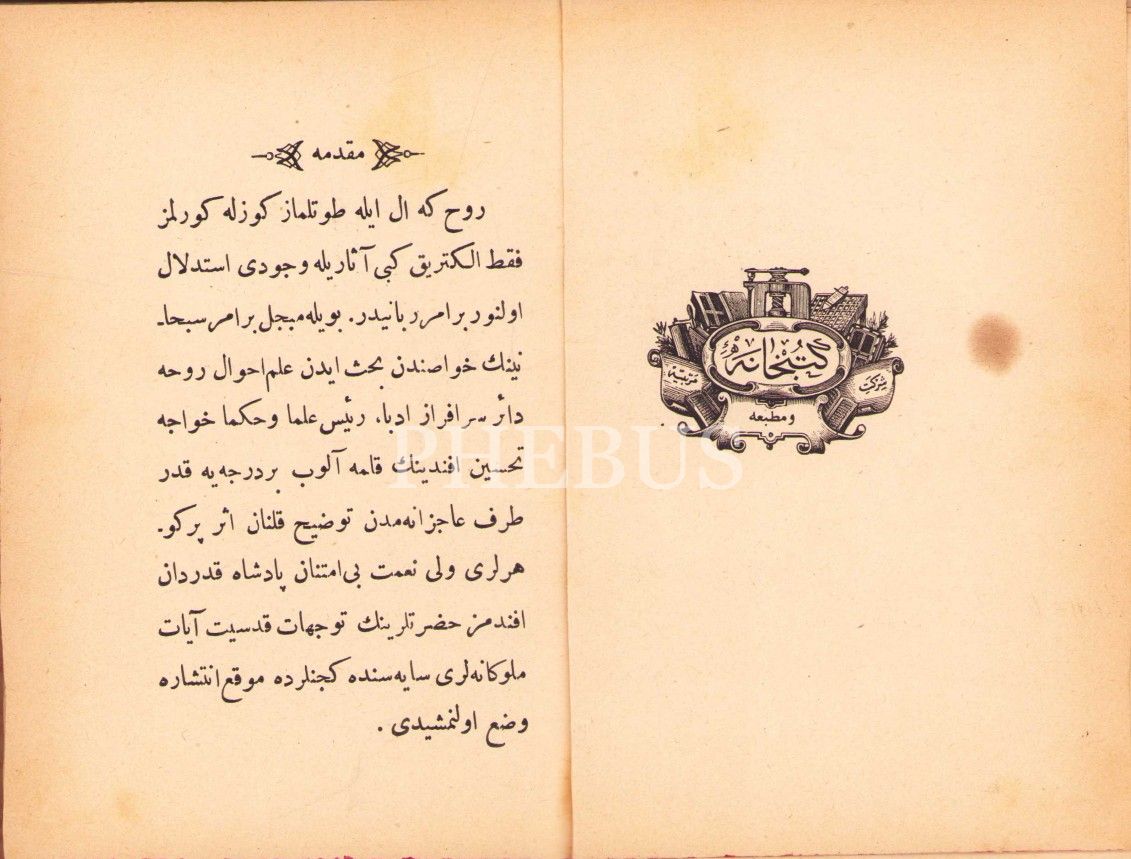 كتبخانه
شركت
مرتبيه
و مطبعه
مقدمه
روح كه ال ايله طوتلماز كوزله كورلمز
فقط الكتريق كبى آثاريله وجودى استدلال
اولنور برامر ربانيدر. بويله مبجل برامر سبحا-
نينك خواصندن بحث ايدن علم احوال روحه
دائر سرافراز ادبا، رئيس علما وحكما خواجه
تحسين افندينك قلمه آلوب بردرجه‌يه قدر
طرف عاجزانه‌مدن توضيح قلنان اثر پركو-
هرلرى ولى نعمت بى‌امتنان پادشاه قدردان
افندمز حضرتلرينك توجهات قدسيت آيات
ملوكانه‌لرى سايه‌سنده كچنلرده موقع انتشاره
وضع اولنمشيدى .
PHEBUS